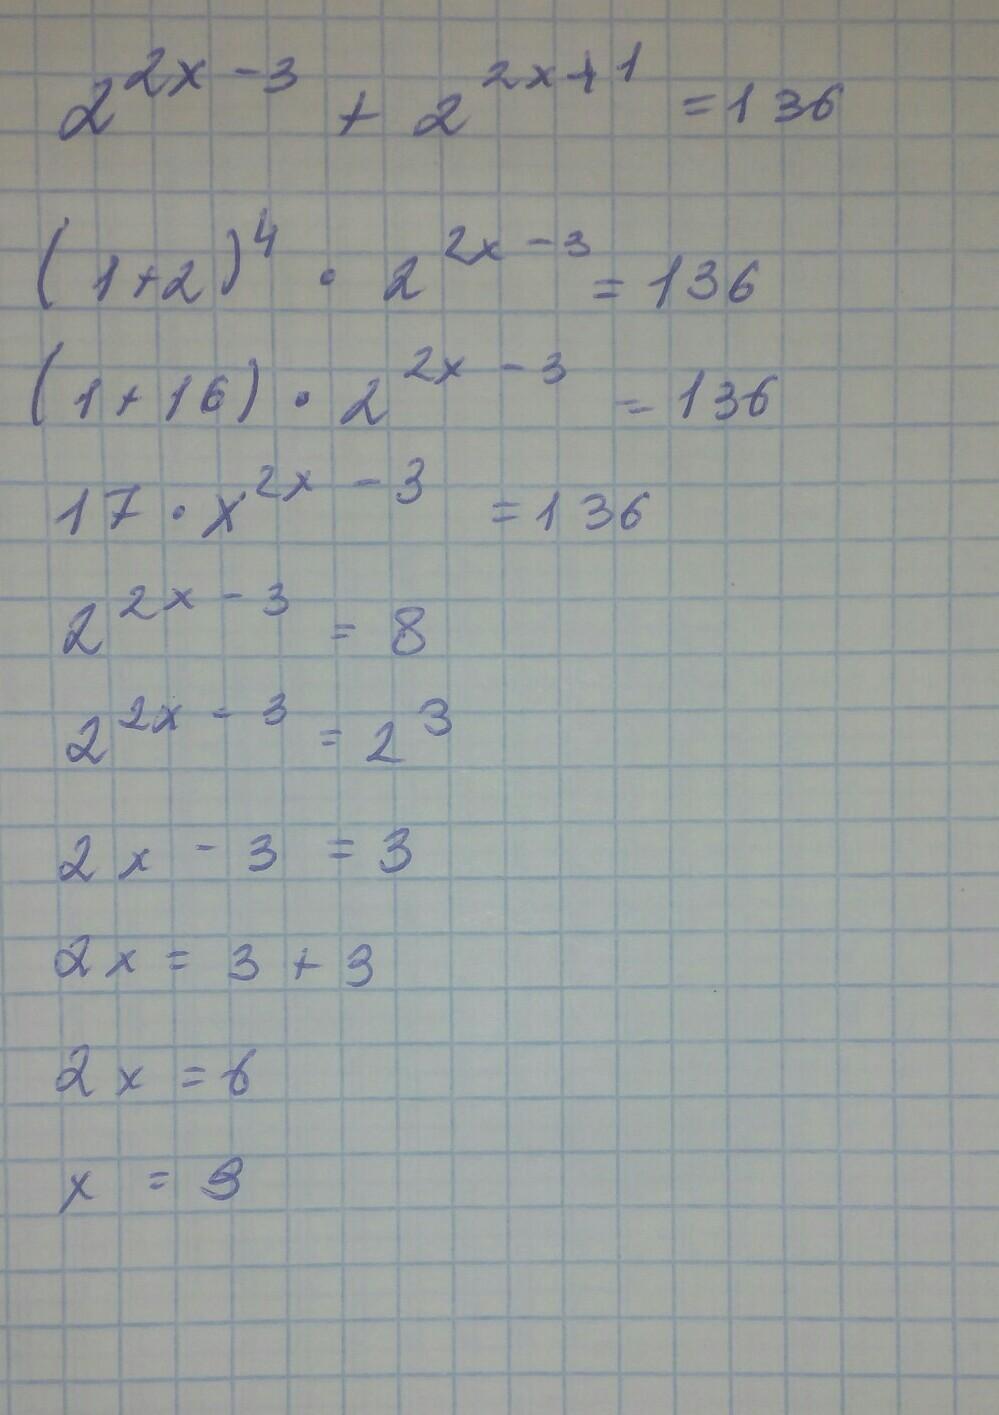 2^{2x-3} + 2^{2x+1} = 136
(1+2)^4 · 2^{2x-3} = 136
(1+16) · 2^{2x-3} = 136
17 · x^{2x-3} = 136
2^{2x-3} = 8
2^{2x-3} = 2^3
2x - 3 = 3
2x = 3 + 3
2x = 6
x = 3